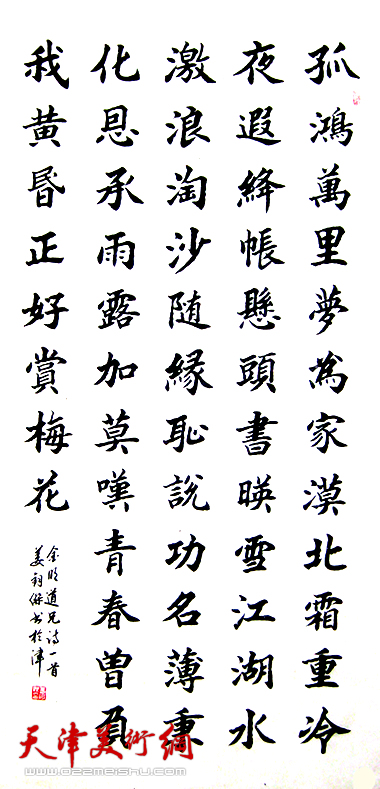 孤鴻萬里夢為家漠北霜重冷
夜遐絳帳懸頭書暎雪江湖水
激浪淘沙随緣恥說功名薄秉
化恩承雨露加莫嘆青春曾負
我黄昏正好賞梅花
道兄詩一首
姜
書於津
天津美術網
www.ozemeishu.com